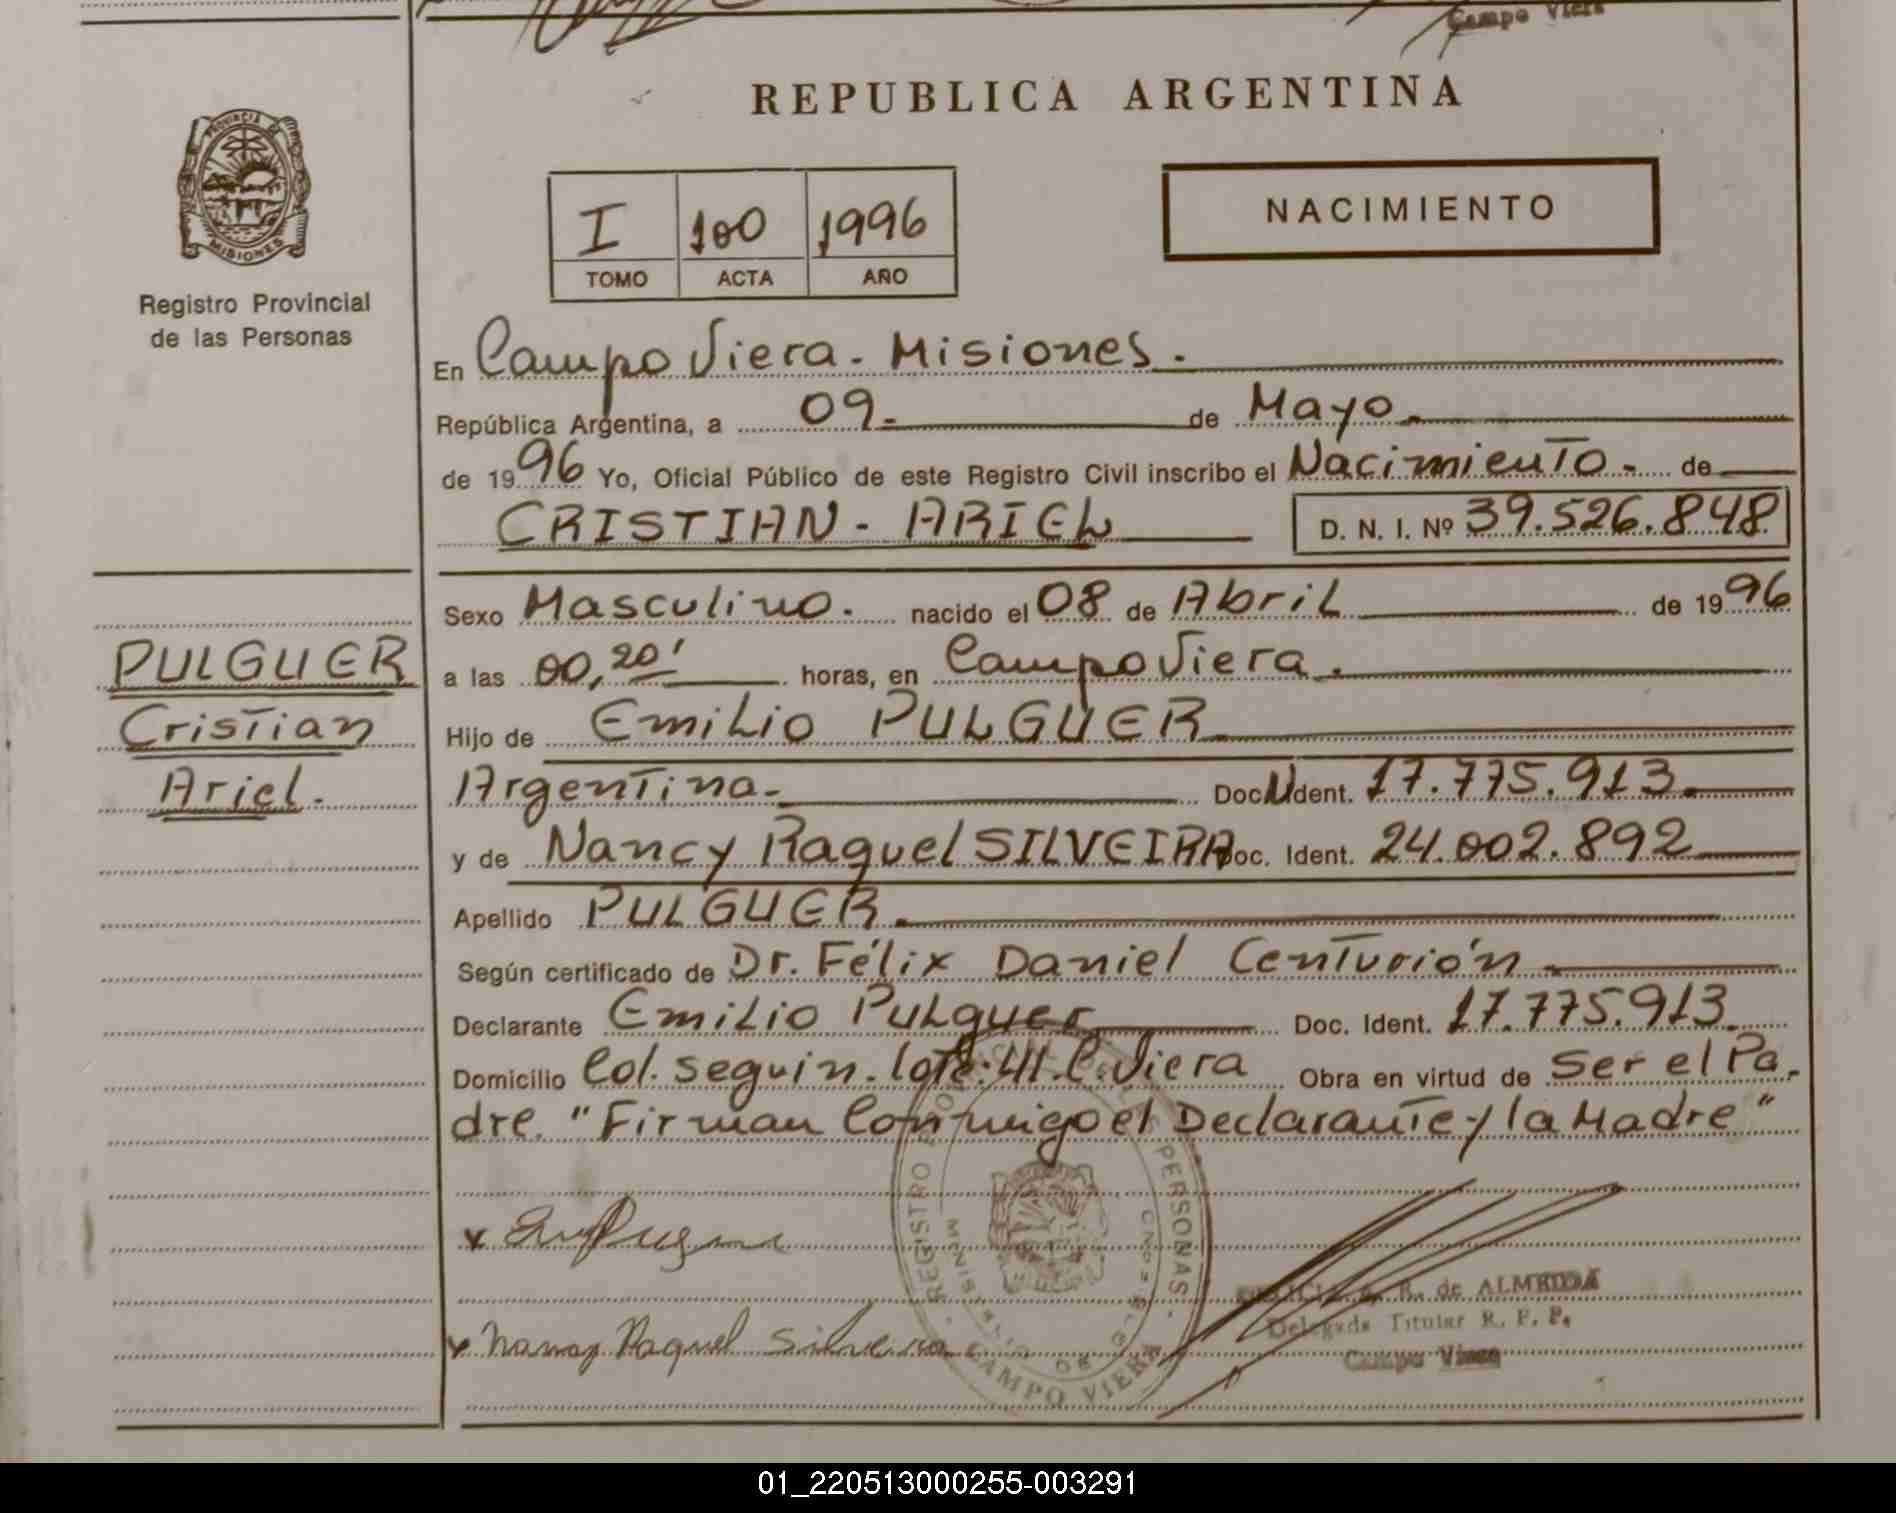 Campo Viera
REPUBLICA ARGENTINA
PROVINCIA DE
MISIONES
Registro Provincial
de las Personas
I 100 1996
TOMO ACTA AÑO
NACIMIENTO
En Campo Viera - Misiones.
República Argentina, a 09.- de Mayo.-
de 1996 Yo, Oficial Público de este Registro Civil inscribo el Nacimiento.- de
CRISTIAN - ARIEL D. N. I. Nº 39.526.848
Sexo Masculino. nacido el 08 de Abril de 1996
a las 00,20' horas, en Campo Viera.
Hijo de Emilio PULGUER
Argentina.- Doc. N Ident. 17.775.913.
y de Nancy Raquel SILVEIRA Doc. Ident. 24.002.892
Apellido PULGUER.
Según certificado de Dr. Félix Daniel Centurión.-
Declarante Emilio Pulguer Doc. Ident. 17.775.913.
Domicilio Col. Seguin. lote: 41. C. Viera Obra en virtud de Ser el Pa-
dre. "Firman Conmigo el Declarante y la Madre"
PULGUER
Cristian
Ariel.
x
x Nancy Raquel Silveira
REGISTRO PROVINCIAL DE LAS PERSONAS
MINISTERIO DE GOBIERNO
CAMPO VIERA
R. de ALMEIDA
Delegada Titular R. P. P.
Campo Viera
01_220513000255-003291